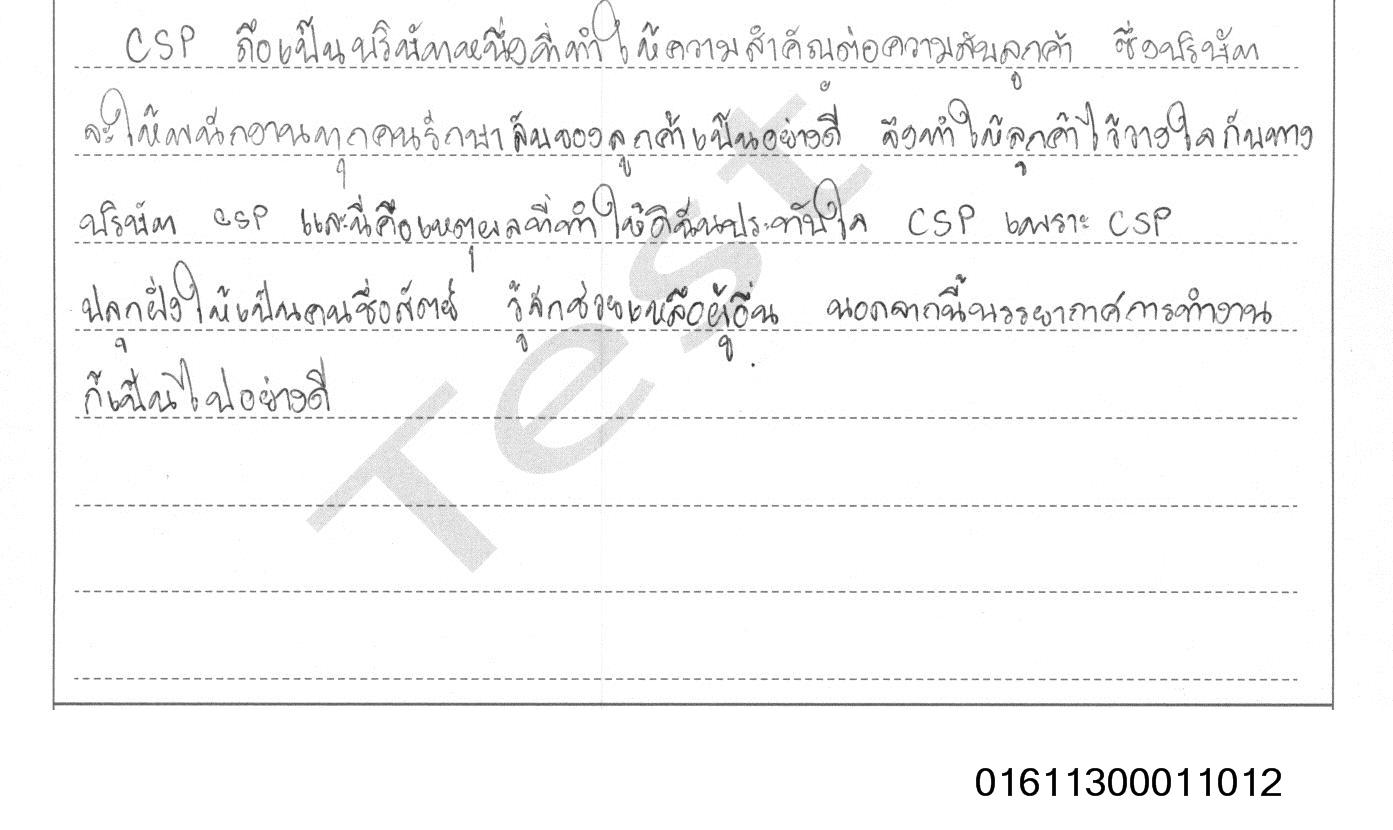 CSP ถือเป็นบริษัทหนึ่งที่ทำให้ความสำคัญต่อความลับลูกค้า ซึ่งบริษัท
จะให้พนักงานทุกคนรักษาลับของลูกค้าเป็นอย่างดี จึงทำให้ลูกค้าไว้วางใจกับทาง
บริษัท CSP และนี่คือเหตุผลที่ทำให้ดิฉันประทับใจ CSP เพราะ CSP
ปลูกฝังให้เป็นคนซื่อสัตย์ รู้จักช่วยเหลือผู้อื่น นอกจากนี้บรรยากาศการทำงาน
ก็เป็นไปอย่างดี
Test
01611300011012